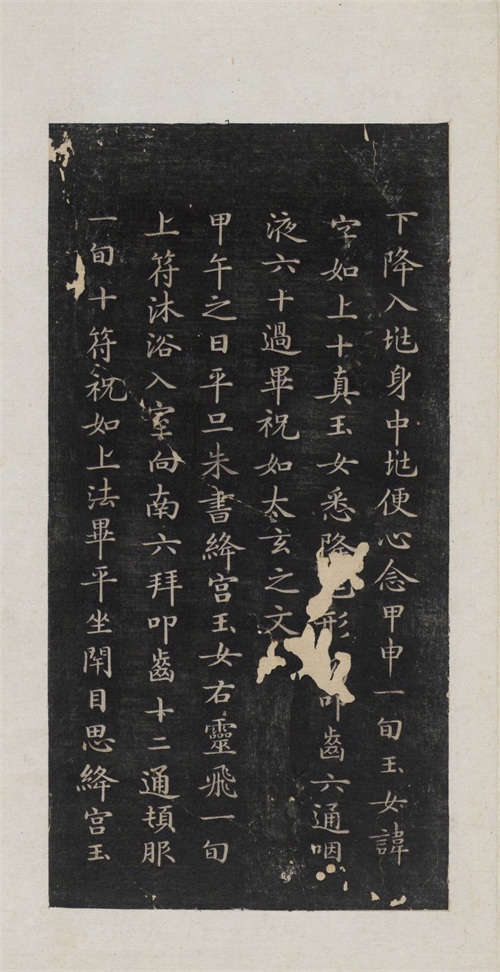 下降入𡉄身中𡉄便心念甲申一旬玉女諱
字如上十真玉女悉降形叩齒六通咽
液六十過畢祝如太玄之文
甲午之日平旦朱書絳宮玉女右靈飛一旬
上符沐浴入室向南六拜叩齒十二通頓服
一旬十符祝如上法畢平坐閇目思絳宮玉